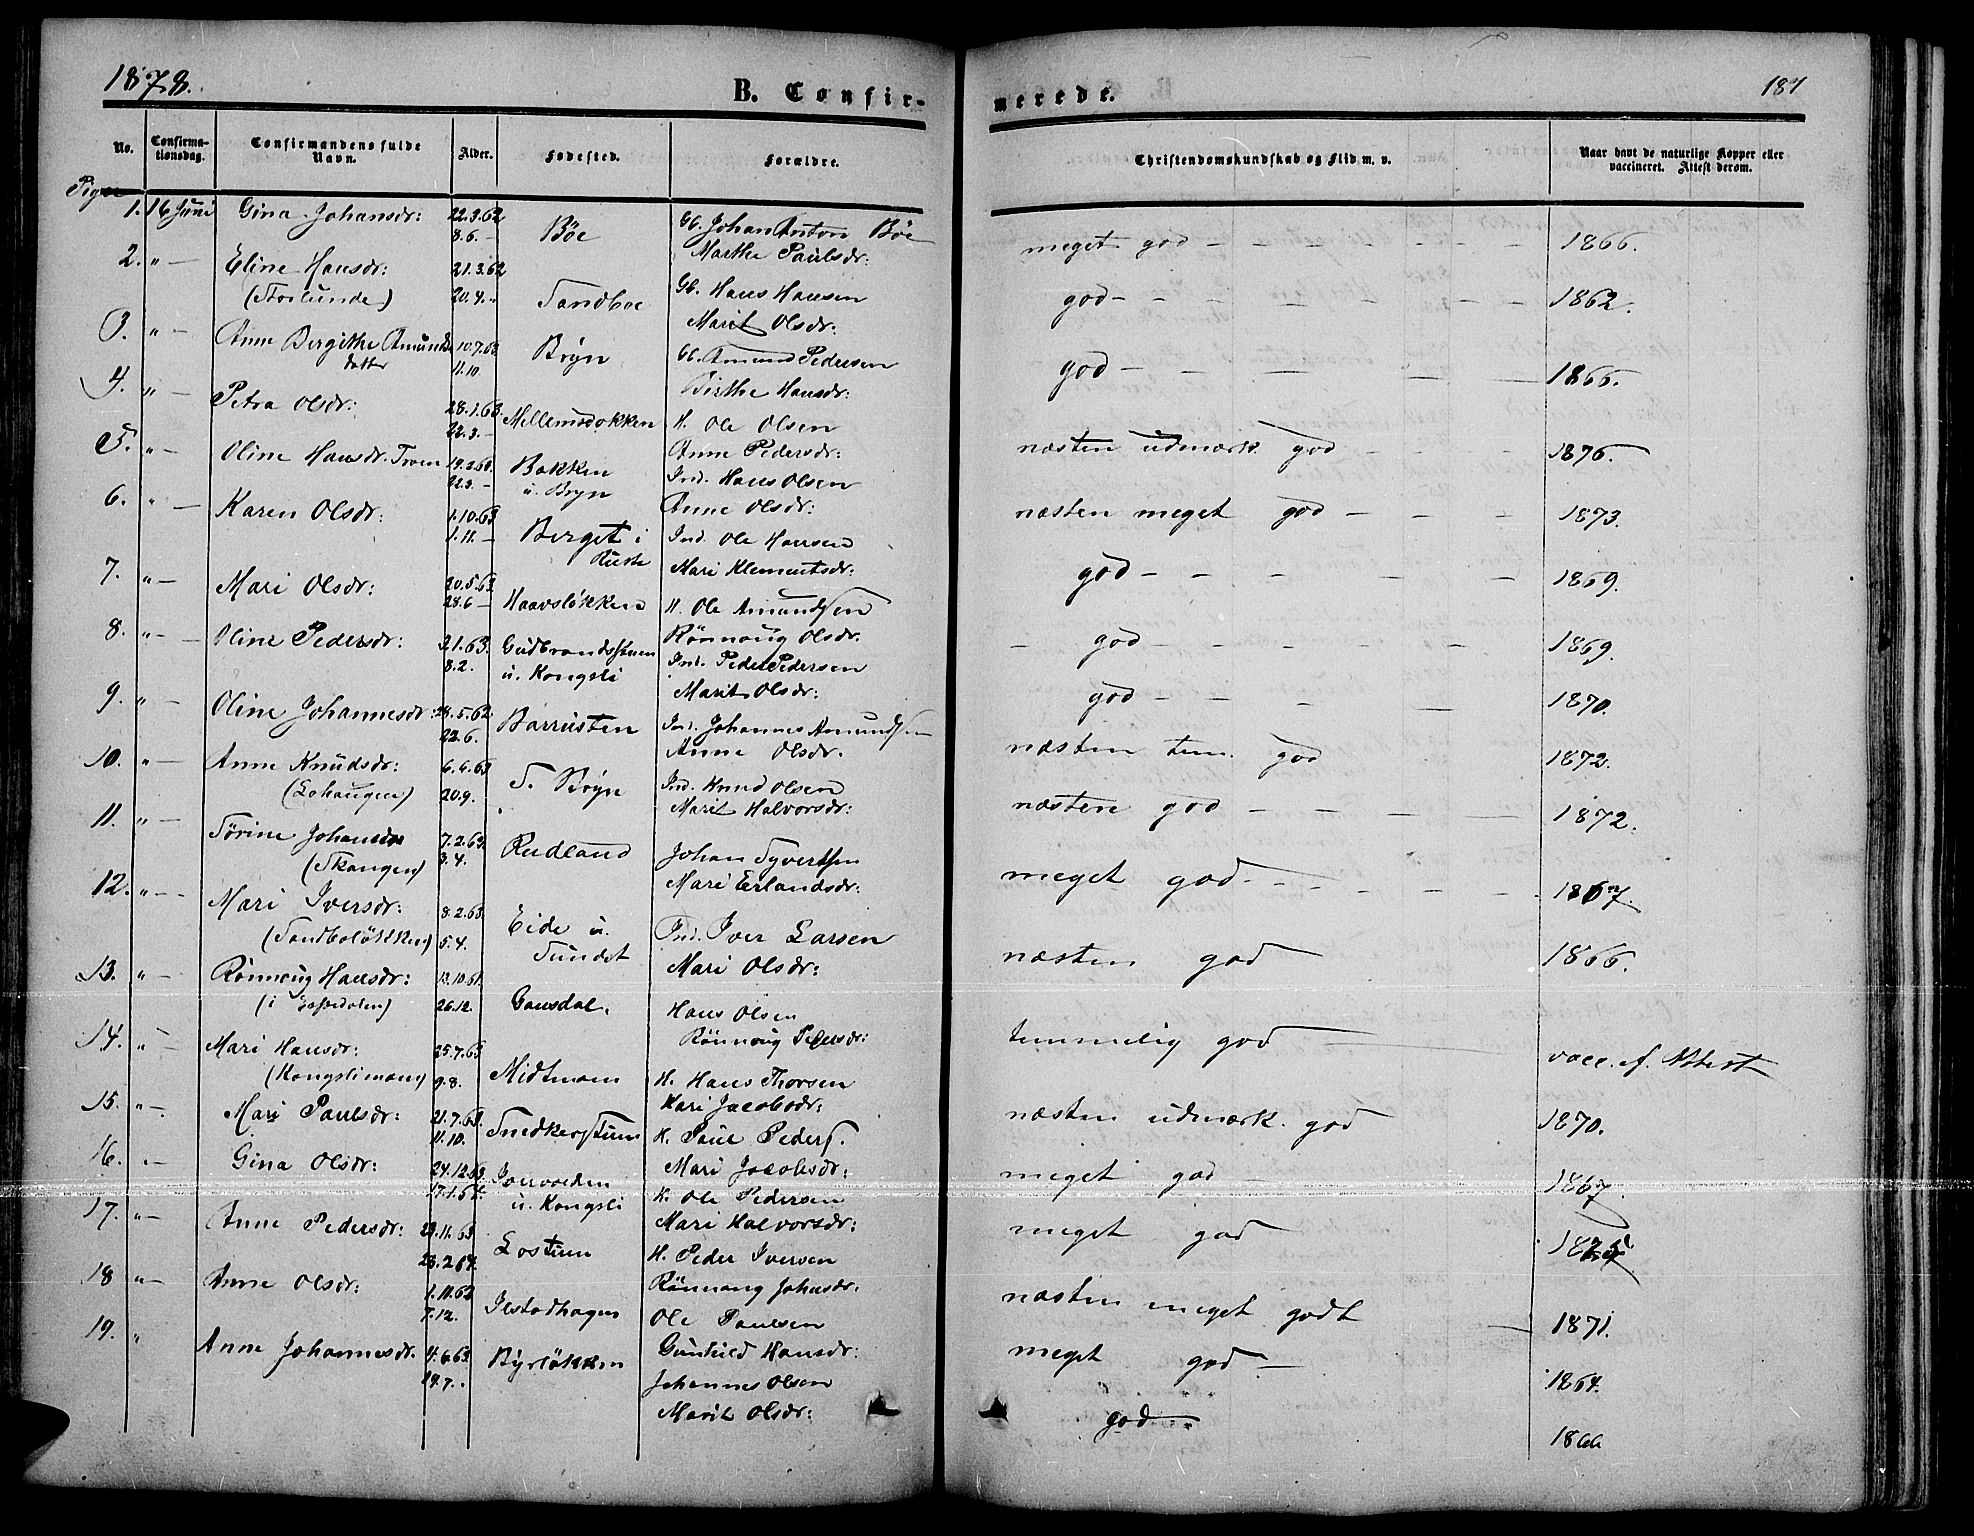 1878.
B. Confirmerede.
187
No.
Confirmationsdag.
Confirmandens fulde Navn.
Alder.
Fødested.
Forældre.
Christendomskundskab og Flid m. v.
Naar havt de naturlige Kopper eller vaccineret. Attest derom.
Piger
1. 16 Juni Gina Johansdr: 22.3.62 8.6. — Bøe Gb. Johan Anton Bøe Marthe Paulsdr: meget god — 1866.
2. " — Eline Hansdr: (Storlunde) 21.3.62 20.4. " Sandboe Gb. Hans Hansen Marit Olsdr: god — 1862.
3. " — Anne Bergitte Amunds datter 10.7.63 11.10 Bryn Gb. Amund Pedersen Birthe Hansdr: god — 1866.
4. " — Petra Olsdr: 28.1.63. 22.3. — Mellemsdokken H. Ole Olsen Anne Pedersdr: næsten udmærk. god — 1876.
5. " — Oline Hansdr. Troen 22.3. — Bakken u. Bryn Ind. Hans Olsen Anne Olsdr: næsten meget god — 1873.
6. " — Karen Olsdr: 1.10.63 1.11. — Berget i Ruste Ind. Ole Hansen Mari Klementsdr: god — 1869.
7. " — Mari Olsdr: 20.5.63 28.6 — Haavsløkken H. Ole Amundsen Rønnoug Olsdr. god — 1869.
8. " — Oline Pedersdr: 21.63. 8.2. Gudbrandsstuen u. Kongsli Ind. Peder Pedersen Marit Olsdr: god — 1870.
9. " — Oline Johannesdr: 28.5.62 22.6. Barrusten Ind. Johannes Amundsen Anne Olsdr. næsten tem. god 1872.
10. " — Anne Knudsdr: (Lohaugen) 20.9. S. Bryn Ind. Knud Olsen Marit Halvorsdr: næsten god — 1872.
11. " — Sørine Johansdr (Skaugen) 7.2.63. 3.4. Rudland Johan Syvertsen Mari Erlandsdr: meget god — 1867.
12. " — Mari Iversdr: (Sandboløkken) 8.2.63. 5.4. Eide u. Sundet Ind. Iver Larsen Mari Olsdr: næsten god 1866.
13. " — Rønnoug Hansdr: (i Espedalen) 26.12. Gausdal. Hans Olsen Rønnoug Pedersdr: temmelig god — vacc. e. Attest
14. " — Mari Hansdr: (Kongslimoen) 25.7.63 9.8. Midtmoen H. Hans Thorsen Kari Jacobsdr: næsten udmærk. god 1870.
15. " — Mari Paulsdr: 21.7.63. 11.10. Snedkerstuen K. Paul Peders. Mari Jacobsdr: meget god — 1867.
16. " — Gina Olsdr: 24.12.63. 17.1.64 u. Kongsli K. Ole Pedersen Mari Halvorsdr: meget god
17. " — Anne Pedersdr: 28.2.64. Lostuen H. Peder Iversen Rønnoug Johnsdr. næsten meget godt — 1871.
18 " — Anne Olsdr: 7.12. Ilstadhagen Ole Paulsen Gunhild Hansdr: meget god — 1864.
19. " Anne Johannesdr. 4.6.63. 19.7. Byrløkken Johannes Olsen Marit Olsdr: god — 1866